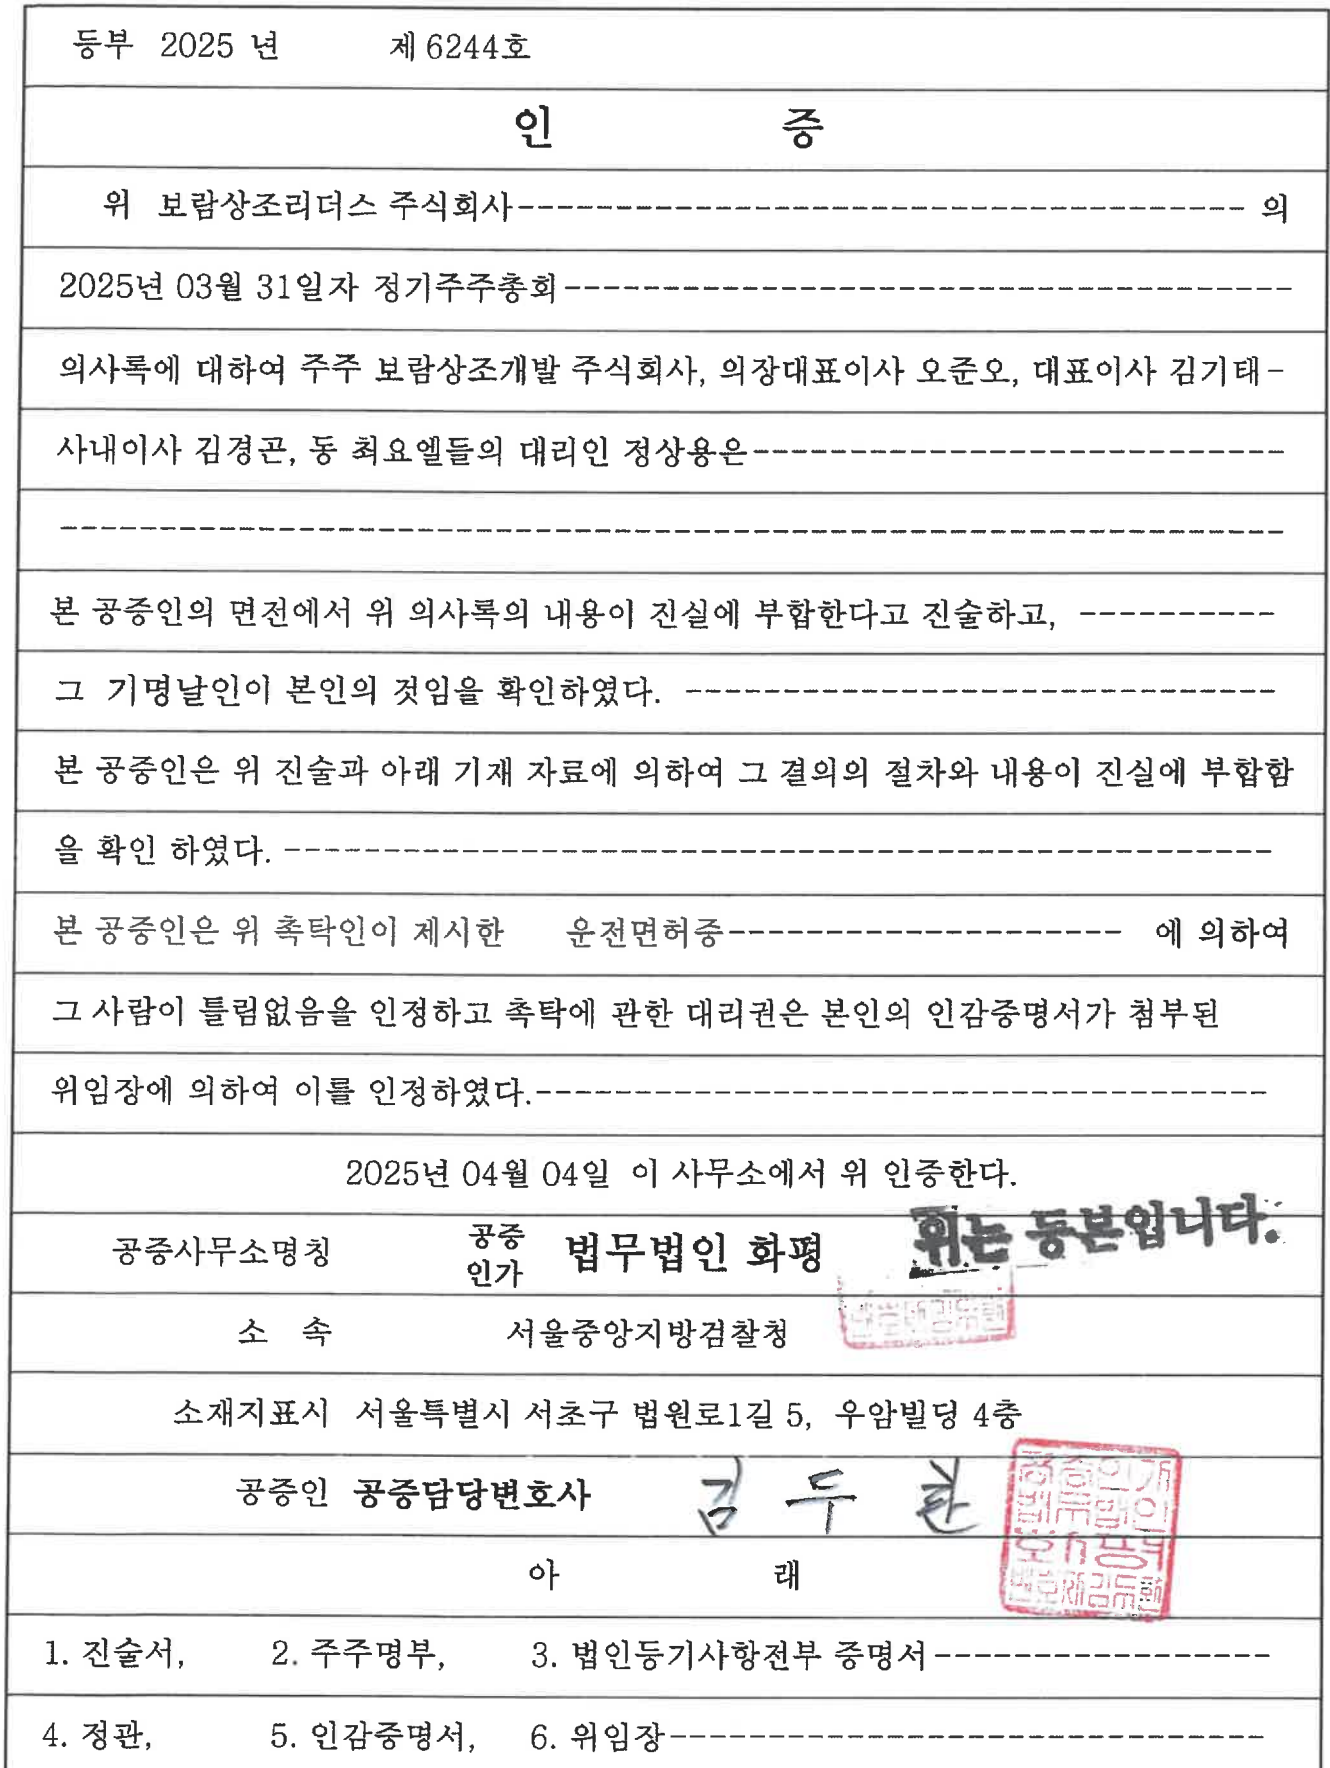 등부 2025 년 제 6244호
인 증
위 보람상조리더스 주식회사------------------------------------- 의
2025년 03월 31일자 정기주주총회-------------------------------------
의사록에 대하여 주주 보람상조개발 주식회사, 의장대표이사 오준오, 대표이사 김기태-
사내이사 김경곤, 동 최요엘들의 대리인 정상용은---------------------------
--------------------------------------------------------------
본 공증인의 면전에서 위 의사록의 내용이 진실에 부합한다고 진술하고, ----------
그 기명날인이 본인의 것임을 확인하였다. ------------------------------
본 공증인은 위 진술과 아래 기재 자료에 의하여 그 결의의 절차와 내용이 진실에 부합함
을 확인 하였다. --------------------------------------------------
본 공증인은 위 촉탁인이 제시한 운전면허증-------------------- 에 의하여
그 사람이 틀림없음을 인정하고 촉탁에 관한 대리권은 본인의 인감증명서가 첨부된
위임장에 의하여 이를 인정하였다.-------------------------------------
2025년 04월 04일 이 사무소에서 위 인증한다.
위는 등본입니다.
공증사무소명칭 공증인가 법무법인 화평
소 속 서울중앙지방검찰청
소재지표시 서울특별시 서초구 법원로1길 5, 우암빌딩 4층
공증인 공증담당변호사 김 두 환
아 래
1. 진술서, 2. 주주명부, 3. 법인등기사항전부 증명서-----------------
4. 정관, 5. 인감증명서, 6. 위임장------------------------------